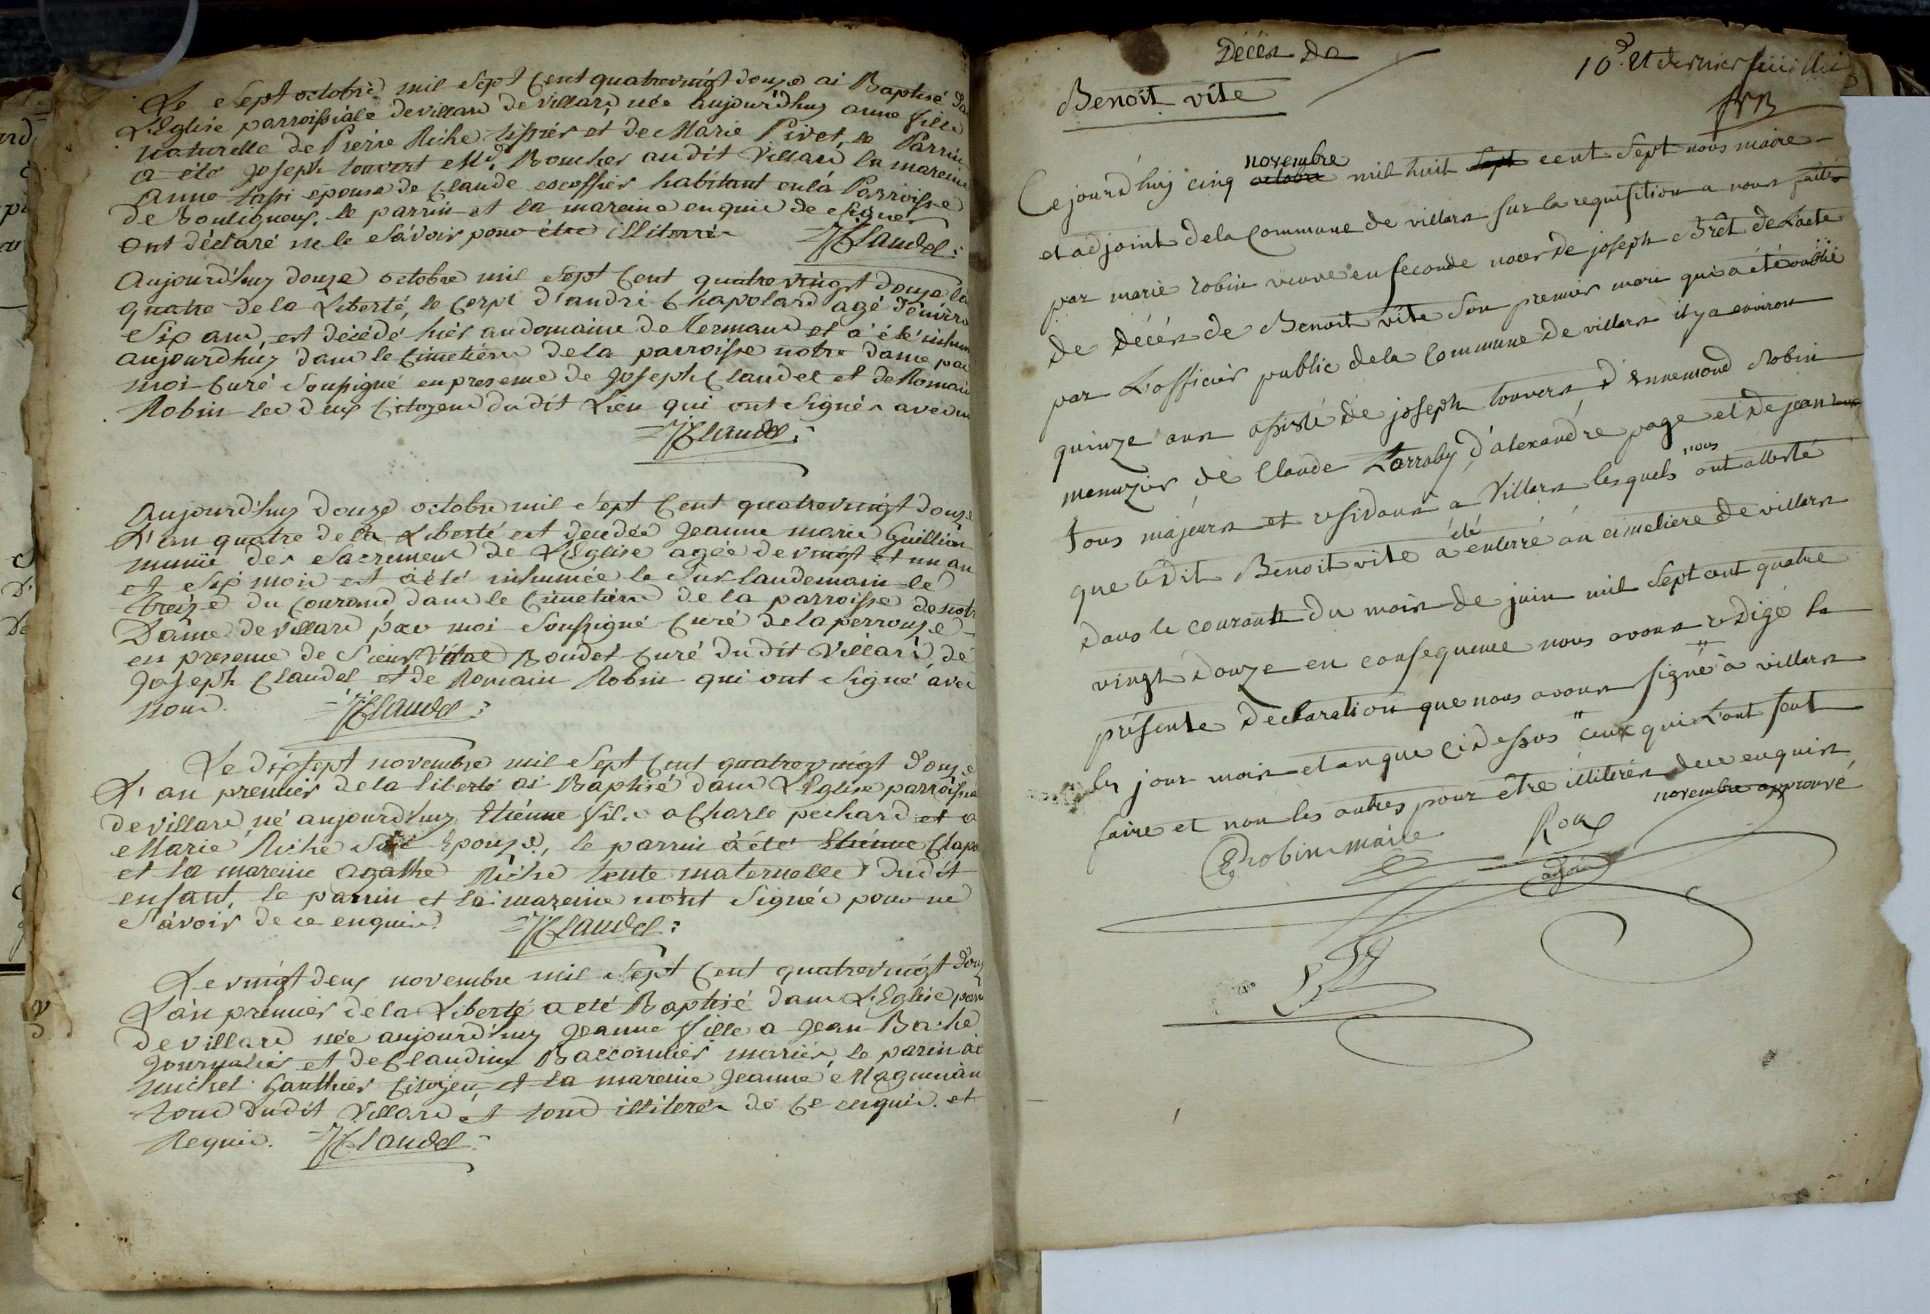 Le Sept octobre mil Sept Cent quatrevingt douze ai Baptisé
L'Eglise parroissiale devillard devillard née aujourd'huy anne fille
naturelle de Pierre Riche tissier et de Marie Pivet, le Parrin
a été Joseph touvert Boucher audit Villard la mareine
Anne tassi epouse de Claude escoffier habitant enla Parroisse
de Bouligneux, le parrin et la mareine enquis de Signer
ont déclaré ne le Sávoir pour être illiterré
JClaudel
Aujourd'huy douze octobre mil Sept Cent quatrevingt douze
quatre de la Liberté, le Corps d'andré Chapolard agé
Six ans, est décédé hier audomaine de Mermand et a été
aujourdhuy dans le Cimetière dela parroisse notre dame par
moi Curé Soussigné en presence de Joseph Claudel et deRomain
Robin les deux Citoyens dudit Lieu qui ont Signés avec
JClaudel
Aujourd'huy douze octobre mil Sept Cent quatrevingt douze
L'an quatre de la Liberté est decedée Jeanne marie Guillion
munie des Sacremens de L'Eglise agée de vingt et un an
et Six mois et a été inhumée le Surlandemain le
treize du Courand dans le Cimetière de la parroisse de
Dame devillard par moi Soussigné Curé delaperrouze
en presence de Sieur Vital Boudet Curé dudit Villard de
Joseph Claudel et de Romain Robin qui ont Signé avec
Nous. JClaudel
Le dixsept novembre mil Sept Cent quatrevingt douze
L'an premier dela liberté ai Baptisé dans L'Eglise parroissi
devillard né aujourd'huy Etiénne fils a Charle pechard et a
Marie Riche Son Epouse, le parrin a été Etiénne Clapo
et la mareine agathe Riche tente maternelle dudit
enfant, le parrin et la mareine n'ont Signés pour ne
Savoir de ce enquis. JClaudel
Le vingt deux novembre mil Sept Cent quatrevingt
L'an premier dela Liberté a été Baptisé dans L'Eglise
devillard née aujourd'huy Jeanne fille a Jean
Journalier et deClaudine Baccomier mariés, le parin
Michel Gauthier Citoyen, et la mareine Jeanne
tous dudit Villard et tous illiterés de Ce enquis. et
Requis. JClaudel
Décés de
Benoit vite
10e et dernier feuillet
Cejourd'huy cinq octobre novembre mil huit sept cent sept nous maire
et adjoint dela commune de villars sur la requisition a nous faite
par marie robin veuve en seconde noces de joseph Brêt de L'acte
de décés de Benoit vite son premier mari qui a été oublié
par L'officier public dela commune de villars il y a environ
quinze ans assisté de joseph touvers, d'Ennemond Robin
menuzier de Claude Larraby, d'alexandre page et de jean
tous majeurs et residans a Villars lesquels nous ont attesté
que ledit Benoit vite a été enterré au cimetiere de villars
dans le courant du mois de juin mil Sept cent quatre
vingt douze en consequence nous avons redigé la
présente declaration que nous avons signé a villars
les jour mois et an que cidessus ceux qui L'ont sçut
faire et non les autres pour être illiterés dece enquis
novembre approuvé
ERobin maire